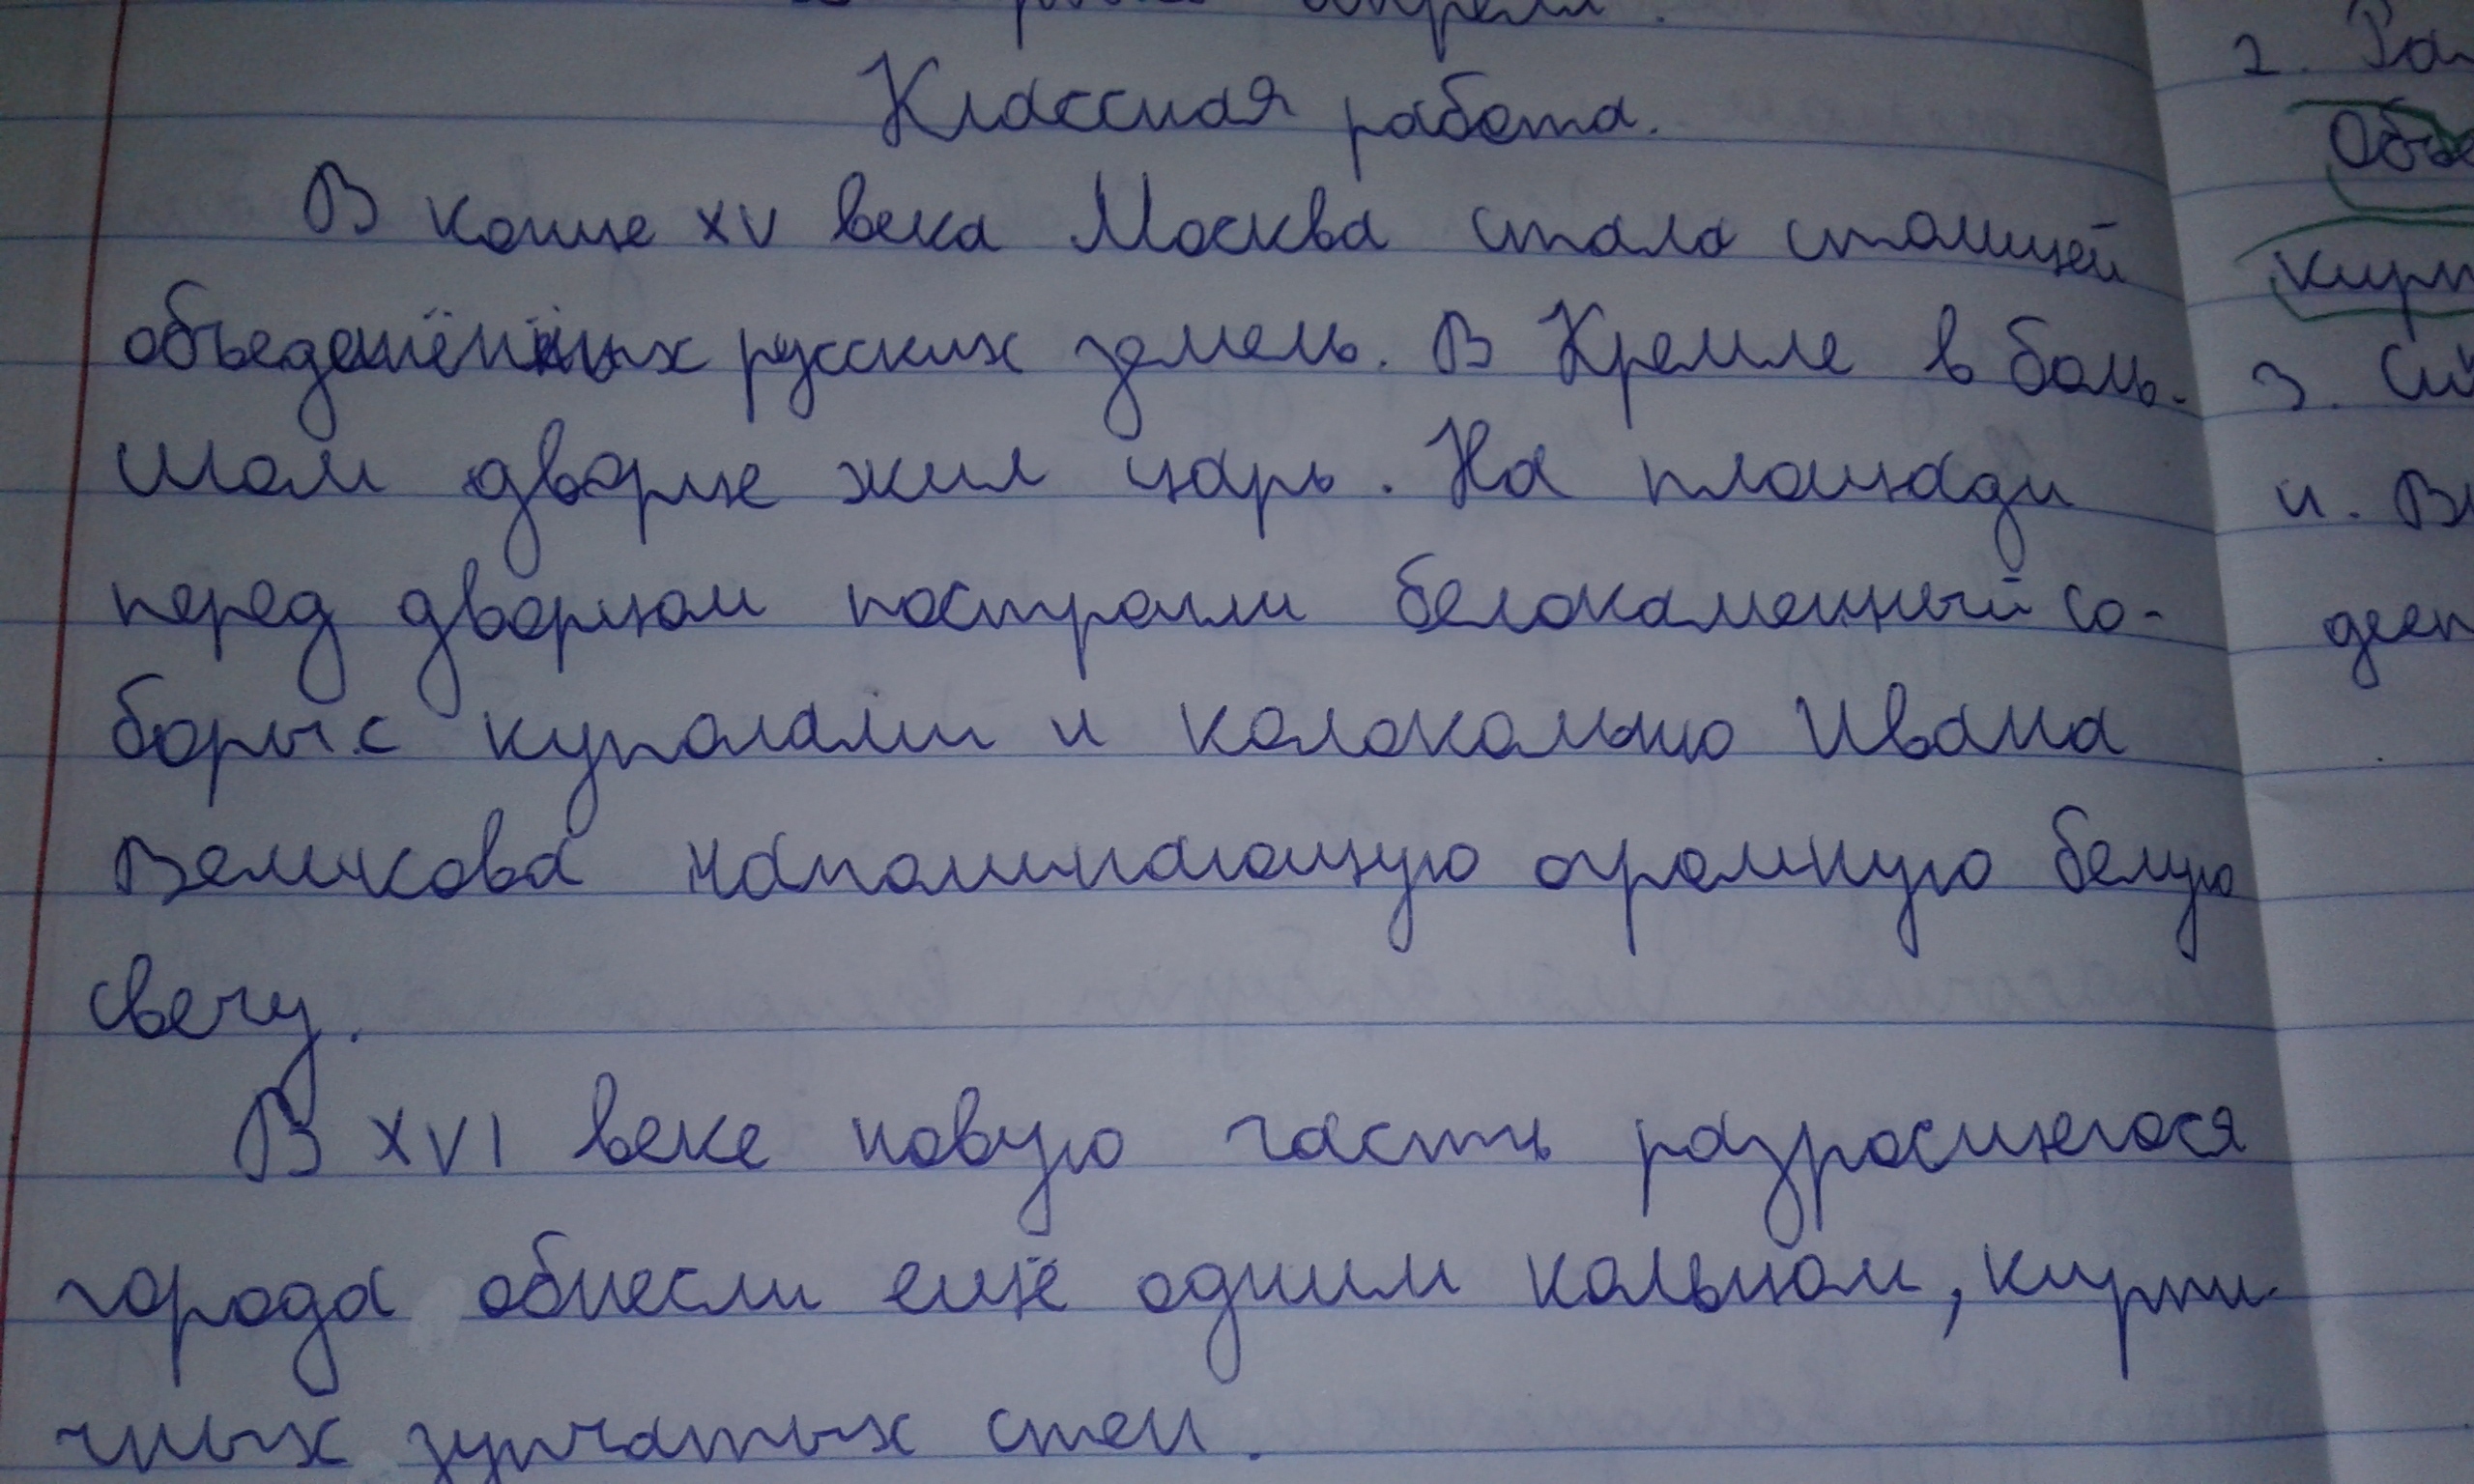 апреля.
Классная работа.
В конце XV века Москва стала столицей
объеденённых русских земель. В Кремле в боль-
шом дворце жил царь. На площади
перед дворцом построили белокаменный со-
боры с куполами и колокольню Ивана
Великова напоминающую огромную белую
свечу.
В XVI веке новую часть разросшегося
города обнесли ещё одним кольцом, кирпи
чных зупчатых стен.
2. Ра
Объе
кирп
3. Си
4. В